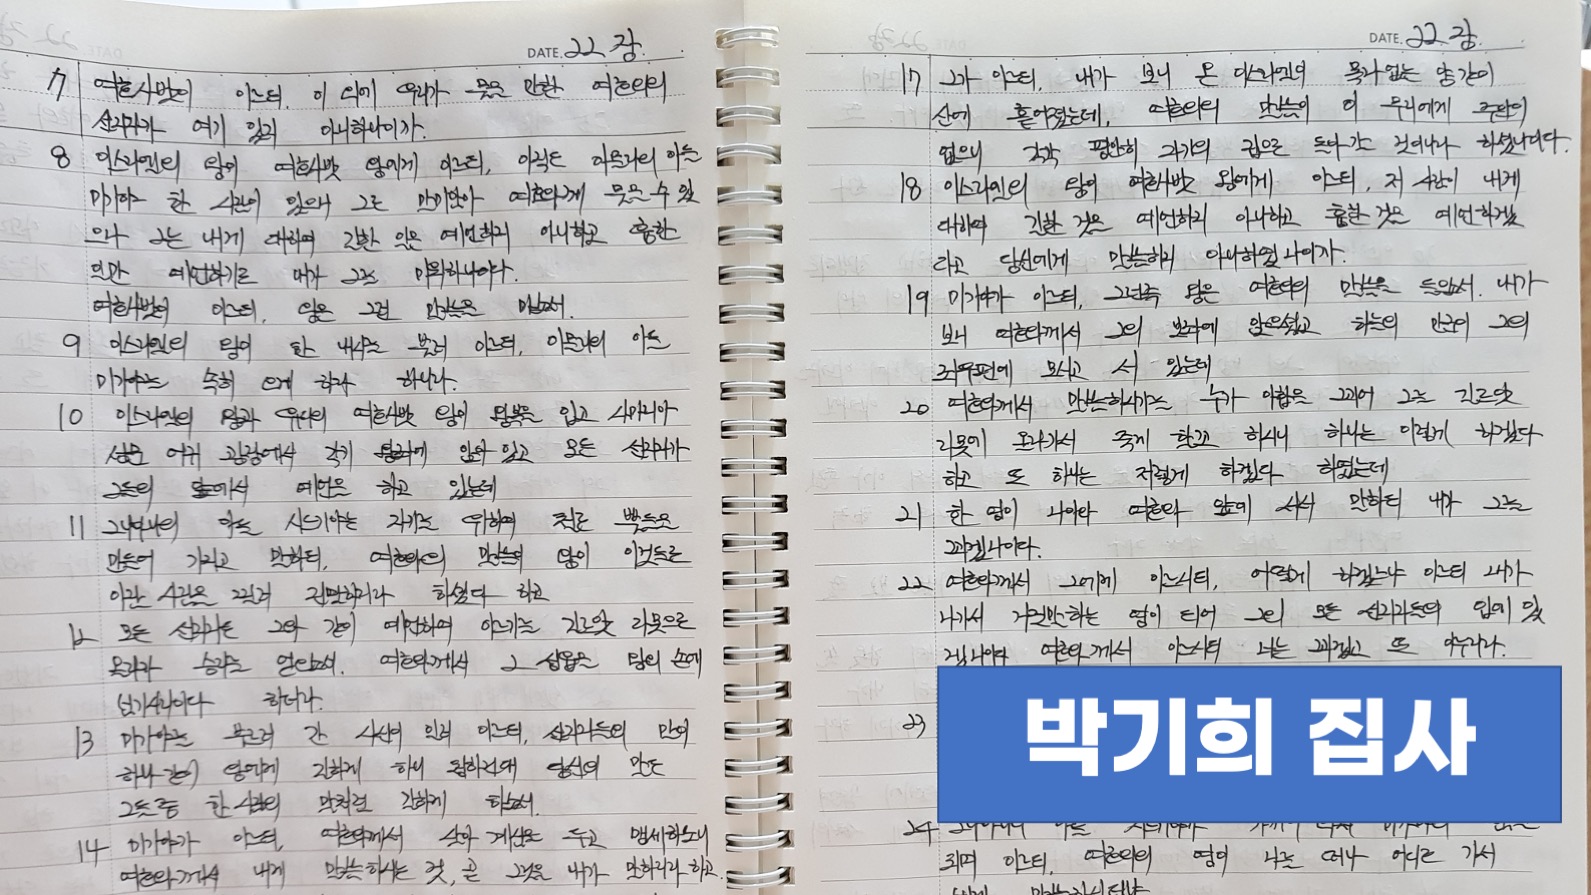 DATE. 22장.
7 여호사밧이 이르되, 이 외에 우리가 물을 만한 여호와의
선지자가 여기 있지 아니하나이까.
8 이스라엘의 왕이 여호사밧 왕에게 이르되, 아직도 이믈라의 아들
미가야 한 사람이 있으니 그로 말미암아 여호와께 물을 수 있
으나 그는 내게 대하여 길한 일은 예언하지 아니하고 흉한
일만 예언하기로 내가 그를 미워하나이다.
여호사밧이 이르되, 왕은 그런 말씀을 마소서.
9 이스라엘의 왕이 한 내시를 불러 이르되, 이믈라의 아들
미가야를 속히 오게 하라 하니라.
10 이스라엘의 왕과 유다의 여호사밧 왕이 왕복을 입고 사마리아
성문 어귀 광장에서 각기 왕좌에 앉아 있고 모든 선지자가
그들의 앞에서 예언을 하고 있는데
11 그나아나의 아들 시드기야는 자기를 위하여 철로 뿔들을
만들어 가지고 말하되, 여호와의 말씀이 왕이 이것들로
아람 사람을 찔러 진멸하리라 하셨다 하고
12 모든 선지자도 그와 같이 예언하여 이르기를 길르앗 라못으로
올라가 승리를 얻으소서. 여호와께서 그 성읍을 왕의 손에
넘기시리이다 하더라.
13 미가야를 부르러 간 사신이 일러 이르되, 선지자들의 말이
하나 같이 왕에게 길하게 하니 청하건대 당신의 말도
그들 중 한 사람의 말처럼 길하게 하소서.
14 미가야가 이르되, 여호와께서 살아 계심을 두고 맹세하노니
여호와께서 내게 말씀하시는 것, 곧 그것을 내가 말하리라 하고.
DATE. 22.장.
17 그가 이르되, 내가 보니 온 이스라엘이 목자 없는 양 같이
산에 흩어졌는데, 여호와의 말씀이 이 무리에게 주인이
없으니 각각 평안히 자기의 집으로 돌아갈 것이니라 하셨나이다.
18 이스라엘의 왕이 여호사밧 왕에게 이르되, 저 사람이 내게
대하여 길한 것은 예언하지 아니하고 흉한 것은 예언하겠
라고 당신에게 말씀하지 아니하였나이까.
19 미가야가 이르되, 그런즉 왕은 여호와의 말씀을 들으소서. 내가
보니 여호와께서 그의 보좌에 앉으셨고 하늘의 만군이 그의
좌우편에 모시고 서 있는데
20 여호와께서 말씀하시기를 누가 아합을 꾀어 그를 길르앗
라못에 올라가서 죽게 할꼬 하시니 하나는 이렇게 하겠다
하고 또 하나는 저렇게 하겠다 하였는데
21 한 영이 나아와 여호와 앞에 서서 말하되 내가 그를
꾀겠나이다.
22 여호와께서 그에게 이르시되, 어떻게 하겠느냐 이르되 내가
나가서 거짓말하는 영이 되어 그의 모든 선지자들의 입에 있
겠나이다 여호와께서 이르시되 너는 꾀겠고 또 이루리라.
23
박기희 집사
24
치며 이르되, 여호와의 영이 나를 떠나 어디로 가서